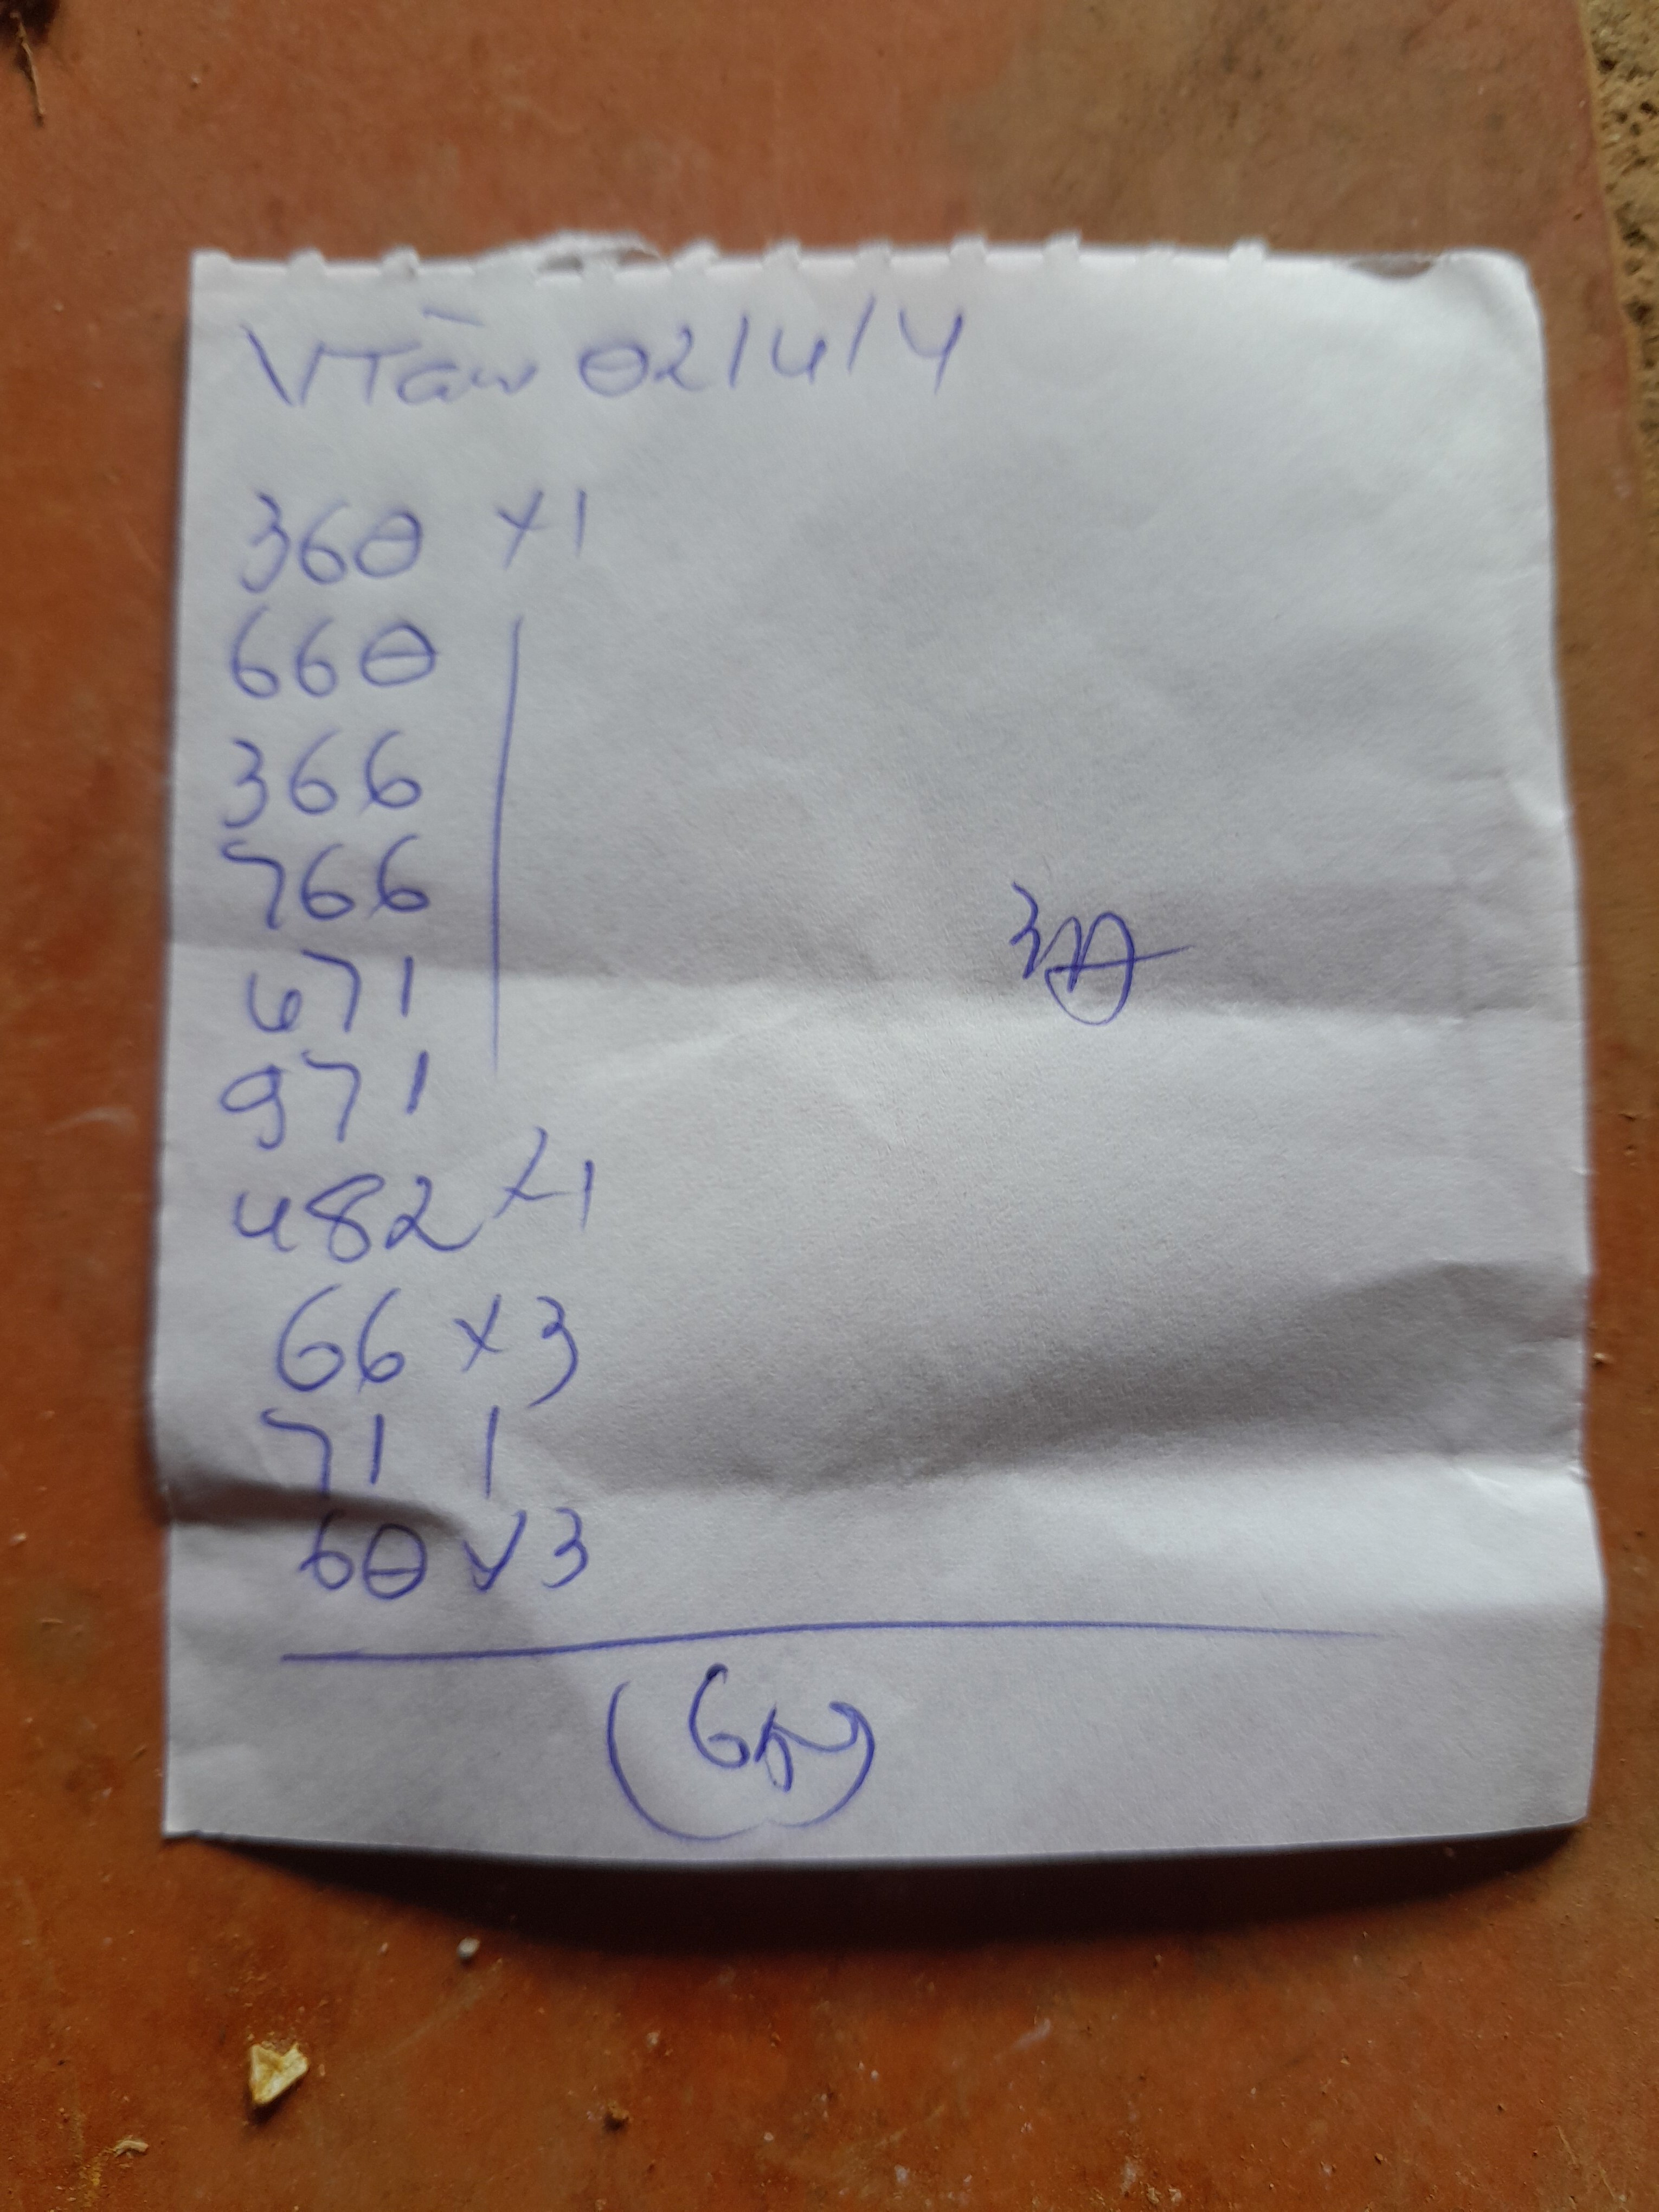 VTàu 02/4/4
360 x1
660 |
366 |
766 |
671 |
971
482 x1
66 x3
71 |
60 x3